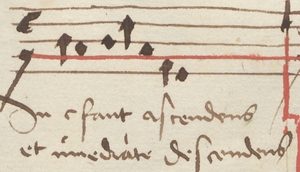 In c faut ascendens
et immediate descendens